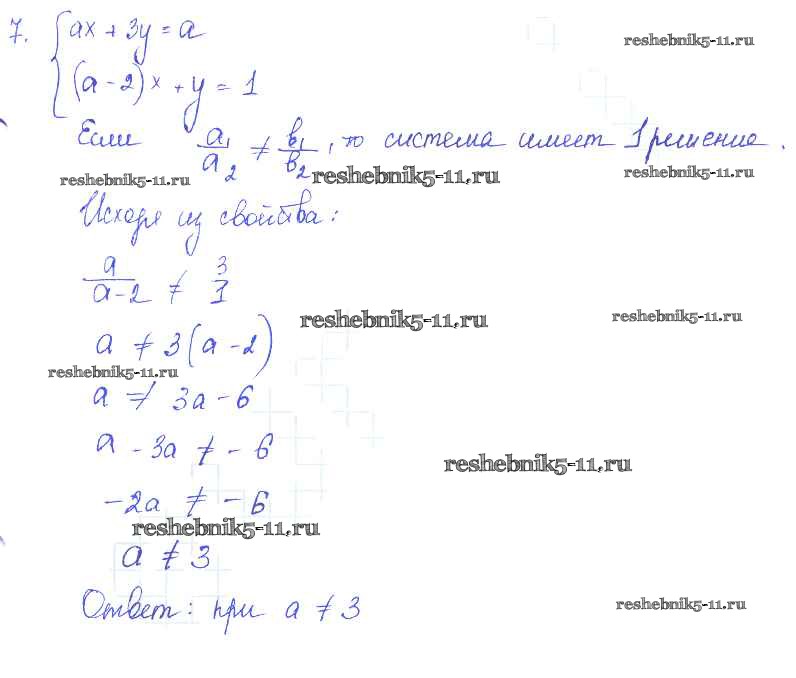 7. { ax + 3y = a
reshebnik5-11.ru
(a - 2)x + y = 1
Если a₁/a₂ ≠ b₁/b₂, то система имеет 1 решение.
reshebnik5-11.ru reshebnik5-11.ru reshebnik5-11.ru
Исходя из свойства:
a/(a - 2) ≠ 3/1
reshebnik5-11.ru reshebnik5-11.ru
a ≠ 3(a - 2)
reshebnik5-11.ru
a ≠ 3a - 6
a - 3a ≠ - 6
reshebnik5-11.ru
-2a ≠ - 6
reshebnik5-11.ru
a ≠ 3
Ответ: при a ≠ 3
reshebnik5-11.ru